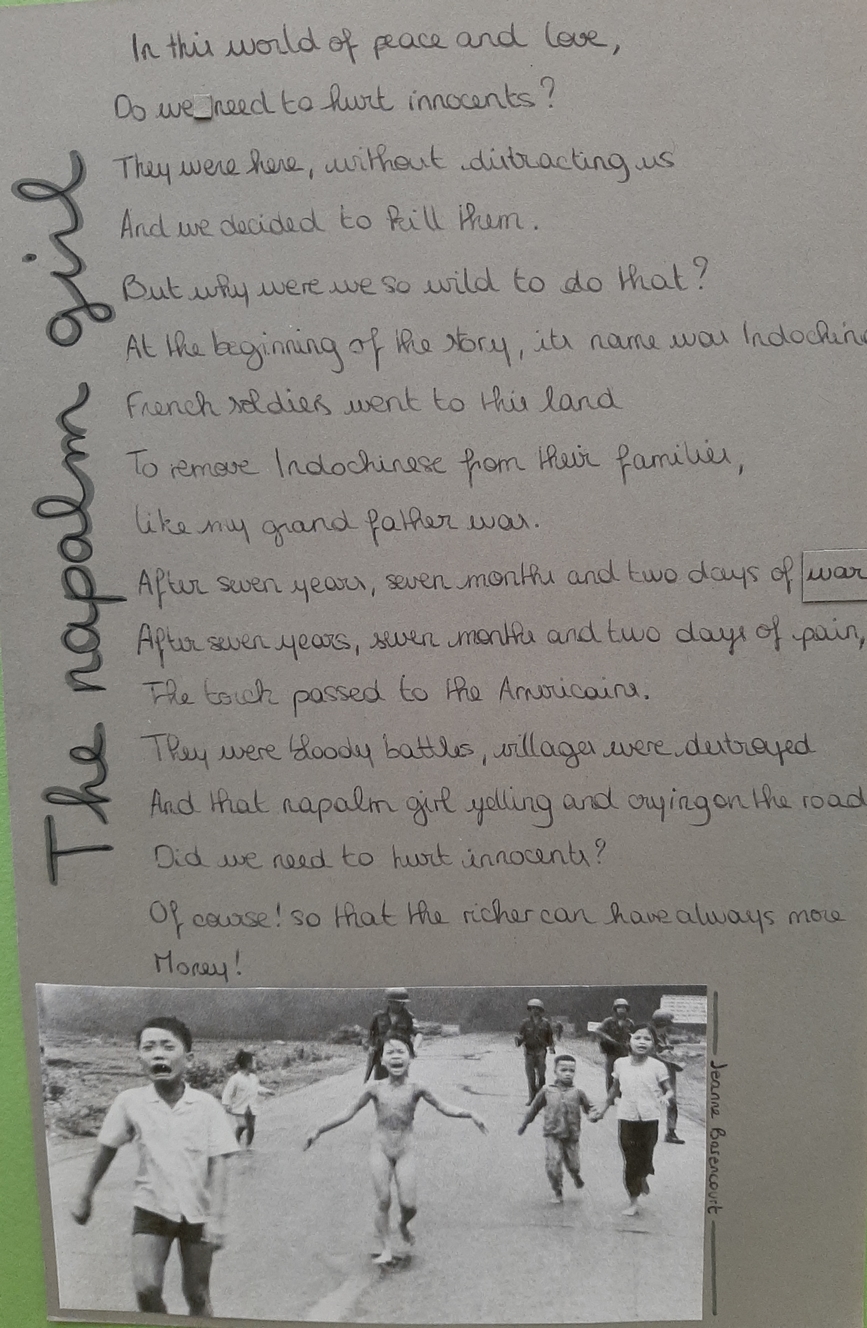 The napalm girl
In this world of peace and love,
Do we need to hurt innocents?
They were here, without distracting us
And we decided to kill them.
But why were we so wild to do that?
At the beginning of the story, its name was Indochin
French soldiers went to this land
To remove Indochinese from their families,
like my grand father was.
After seven years, seven months and two days of war
After seven years, seven months and two days of pain,
The touch passed to the Americains.
They were bloody battles, villages were destroyed
And that napalm girl yelling and crying on the road
Did we need to hurt innocents?
Of course! so that the richer can have always more
Money!
Jeanne Basencourt